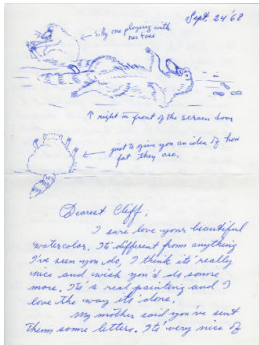 Sept. 24 '68
silly one playing with
her toes
right in front of the screen door
just to give you an idea of how
fat they are.
Dearest Cliff,
I sure love your beautiful
watercolor. It's different from anything
I've seen you do, I think it's really
nice and wish you'd do some
more. It's a real painting and I
love the way it's done.
My mother said you've sent
them some letters. It's very nice of